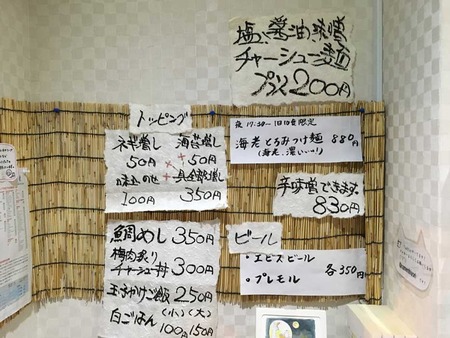 塩、醤油、味噌
チャーシュー麺
プラス200円
トッピング
ネギ増し 海苔増し
50円 +50円
味玉のせ +具全部増し
100円 350円
夜17:30〜1日10食限定
海老とろみつけ麺 880円
(海老、濃いぃっ!)
辛味噌できます。
830円
鯛めし 350円
梅肉炙り
チャーシュー丼 300円
玉子かけご飯 250円
白ごはん (小)(大)
100円 150円
ビール
・エビスビール
・プレモル 各350円